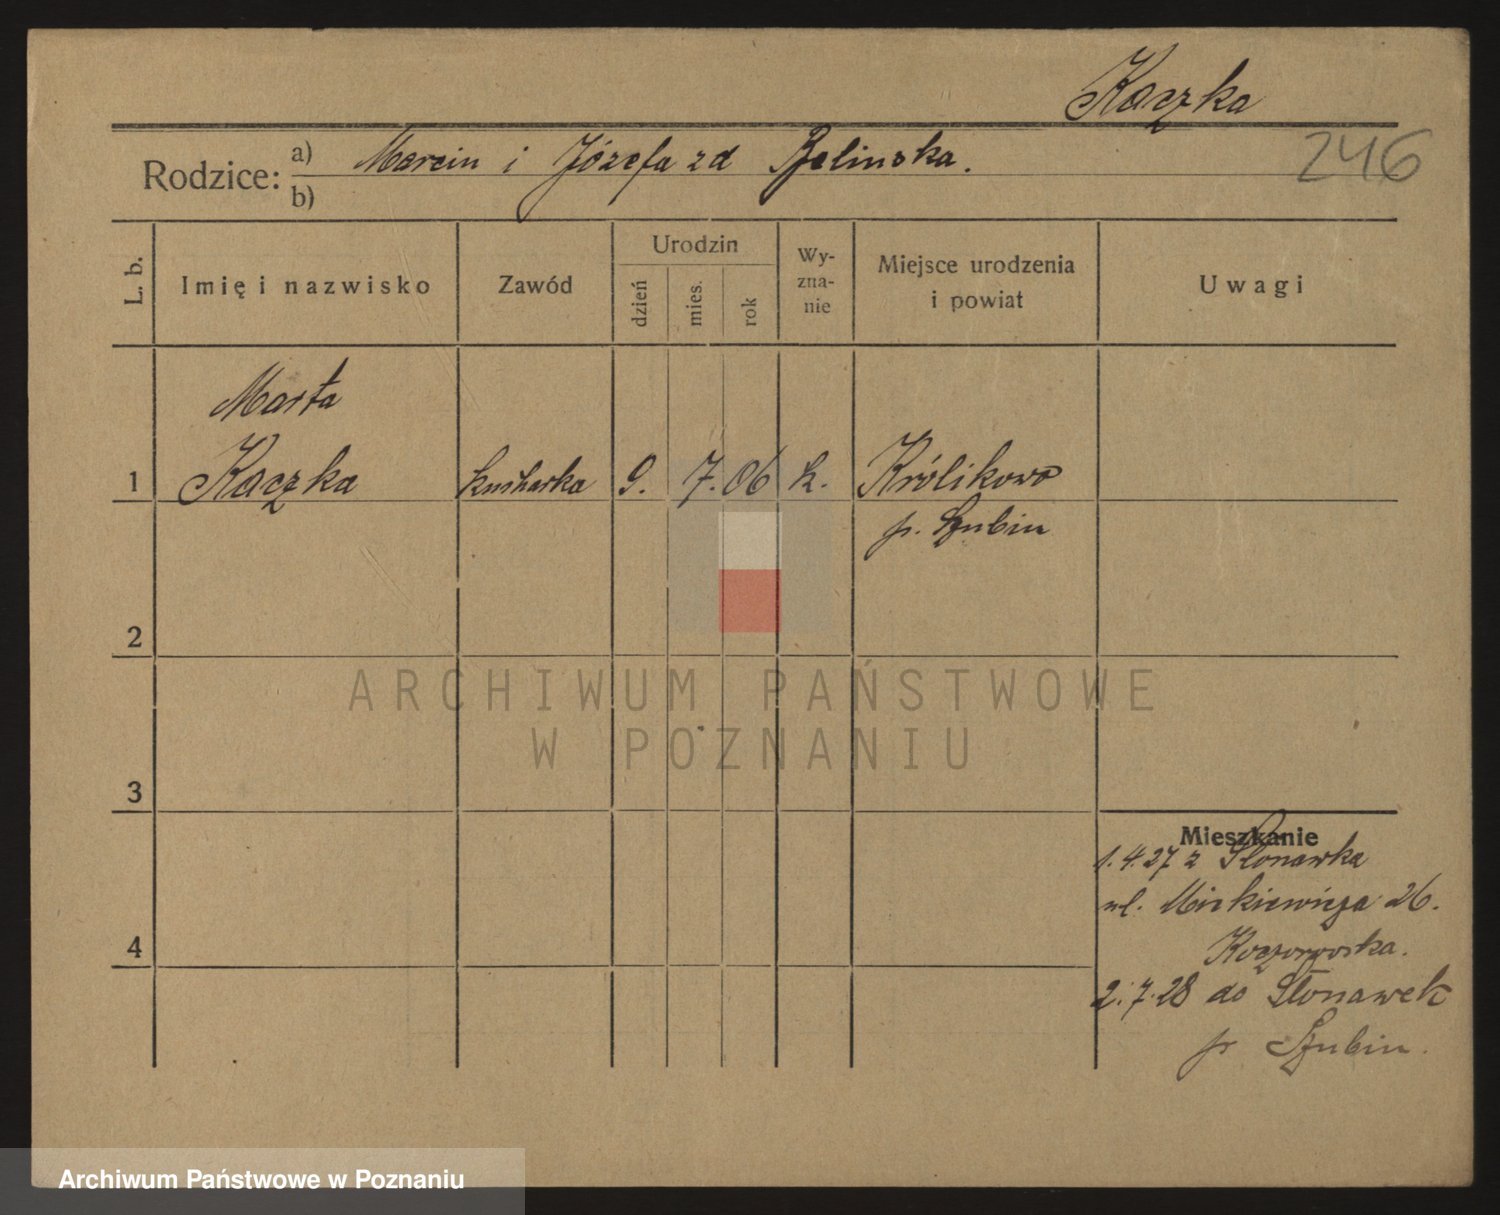 Kaczka
246
Rodzice: a) Marcin i Józefa zd
b)
L. b.
Imię i nazwisko
Zawód
Urodzin
dzień
mies.
rok
Wy-
zna-
nie
Miejsce urodzenia
i powiat
Uwagi
Marta
1 Kaczka kucharka 9. 7. 06 k. Królikowo
p. Szubin
2
3
4
Mieszkanie
1.4.27 z Słonawka
ul. Mickiewicza 26.
2.7.28 do Słonawek
p Szubin.
ARCHIWUM PAŃSTWOWE
W POZNANIU
Archiwum Państwowe w Poznaniu